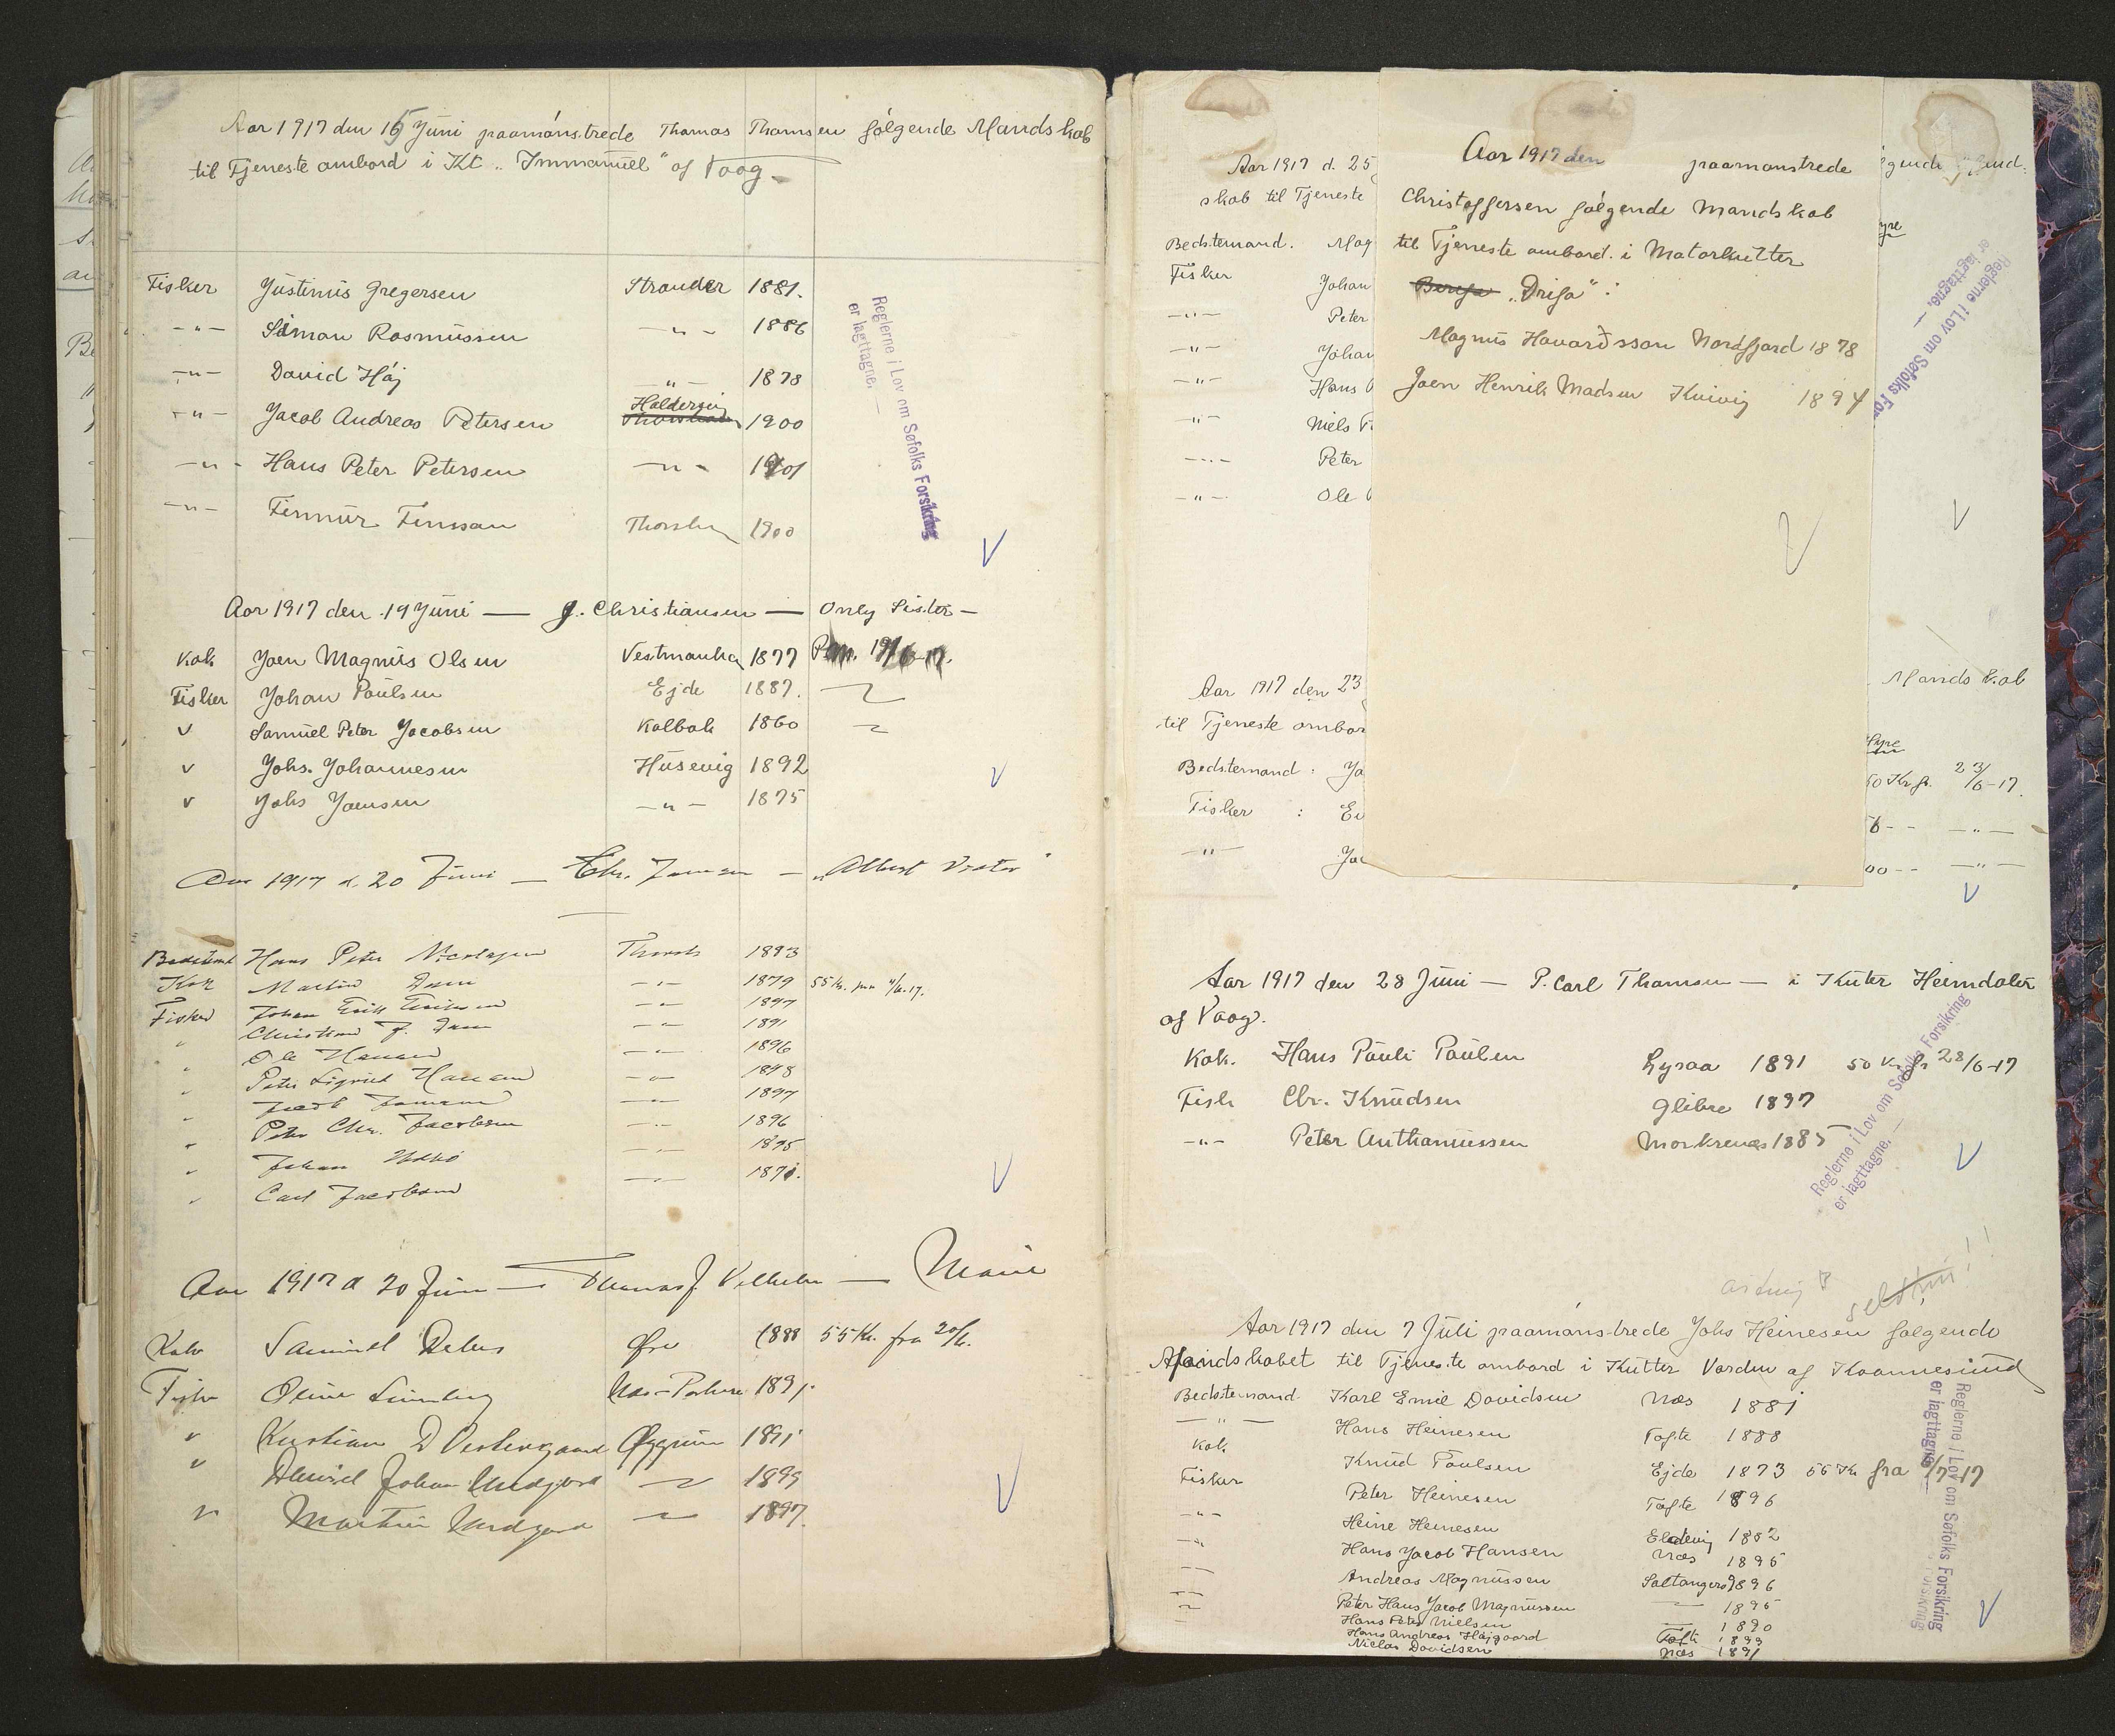 Aar 1917 den 15 Juni paamønstrede Thomas Thomsen følgende Mandskab
til Tjeneste ombord i Kt. „Immanuel“ af Vaag
Fisker Justinus Gregersen Strander 1881.
-"- Simon Rasmussen -"- 1886
-"- David Høj -"- 1878
-"- Jacob Andreas Petersen Haldersvig 1900
-"- Hans Peter Petersen -"- 1901
-"- Finnur Finsson Thorshavn 1900
Reglerne i Lov om Søfolks Forsikring
er iagttagne. —
Aar 1917 den 19 Juni — J. Christiansen — Only Sister —
Kok Joen Magnus Olsen Vestmanha 1877
Fisker Johan Poulsen Ejde 1887.
v Samuel Peter Jacobsen Kalbak 1860
v Johs. Johannesen Husevig 1892
v Johs Joensen -"- 1875
Aar 1917 d. 20 Juni — Chr. Joensen — „Albert Victor“
Bedstmd Hans Peter Nicolajsen Thorsh 1893
Kok Martin Dam -"- 1879 55 Kr. fra
Fisker Johan Erik Eriksen -"- 1897
" Christian J. Dam -"- 1891
" Ole Hansen -"- 1896
" Peter Sigvald Hansen -"- 1898
" Jacob Joensen -"- 1897
" Peter Chr. Jacobsen -"- 1896
" Johan -"- 1875
" Carl Jacobsen -"- 1870.
Aar 1917 d 20 Juni — Thomas J. Vilhelm — Marie
Kok Samuel Debes Øre 1888 55 Kr. fra 20/6.
Fisker 1891.
v Kristian D Vestergaard 1891
v Daniel Johan Nordgerd 1899
v Martin Nordgerd 1897.
Aar 1917 d. 25
skab til Tjeneste
Bedstemand. Mag
Fisker Johan
-"- Peter
-"- Johan
-"- Hans
-"- Niels
-"- Peter
-"- Ole
Aar 1917 den paamønstrede
Christoffersen følgende Mandskab
til Tjeneste ombord i Motorkutter
„Drifa“:
Magnus Havarðsson Nordfjord 1878
Joen Henrik Madsen Kvivig 1894
Reglerne i Lov om Søfolks For
er iagttagne. —
Aar 1917 den 23 Mandskab
til Tjeneste ombor
Hyre
Bedstemand: Jo 50 Kr fr. 23/6-17.
Fisker : -"-
-"- Ja 00-- -"-
Aar 1917 den 28 Juni — P. Carl Thomsen — i Kuter Heimdalur
af Vaag.
Kok. Hans Pauli Poulsen Lyraa 1891 50 Kr fr 28/6-17
Fisk Chr. Knudsen Glibre 1897
-"- Peter Anthoniussen Morkrenæs 1885
Reglerne i Lov om Søfolks Forsikring
er iagttagne. —
Aar 1917 den 7 Juli paamønstrede Johs Heinesen følgende
Mandskabet til Tjeneste ombord i Kutter Varden af Kvannesund
Bedstemand Karl Emil Davidsen Næs 1881
-"- Hans Heinesen Tofte 1888
Kok Knud Poulsen Ejde 1873 55 Kr fra 7/7-17
Fisker Peter Heinesen Tofte 1896
-"- Heine Heinesen Eldevig 1882
-"- Hans Jacob Hansen Næs 1895
-"- Andreas Magnussen Saltangerå 1896
-"- Peter Hans Jacob Magnussen -"- 1895
-"- Hans Peter Nielsen -"- 1890
Hans Andreas Højgaard Tofte 1899
Niclas Davidsen Næs 1891
Reglerne i Lov om Søfolks Forsikring
er iagttagne. —